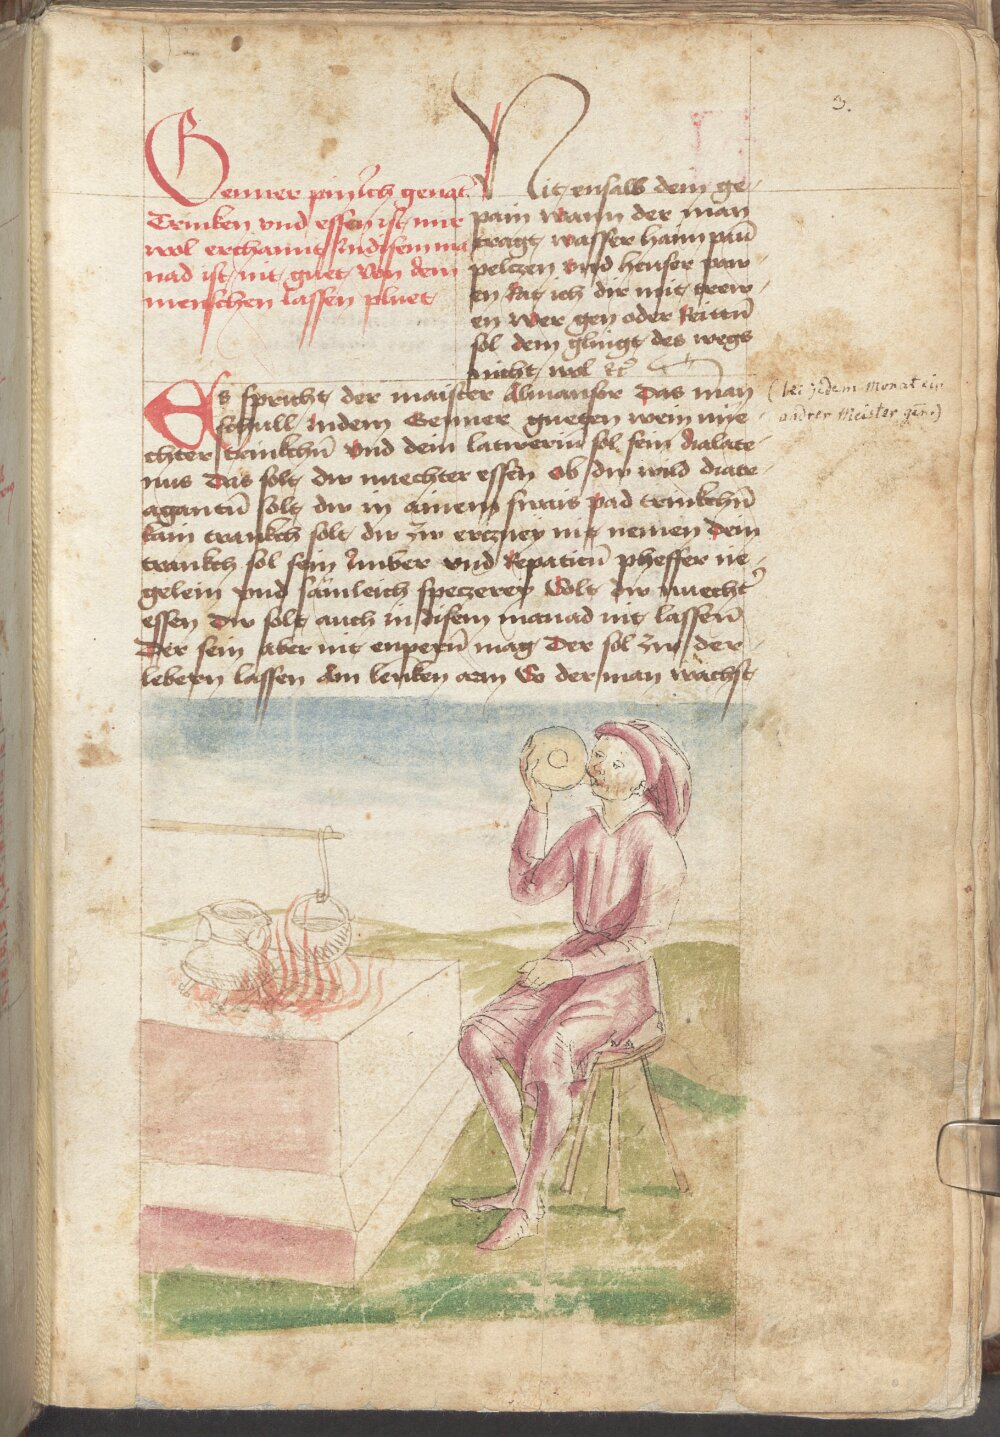 3.
Genner pin ich genāt
Trinken vnd essen ist mir
wol erchannt Jn disem ma
nad ist nit guet von dem
menschen lassen pluet
Nit ensalb dem ge-
pain wann der man
tragt wasser haim paū
pelczen vnd heuser paw-
en Rat ich dir mit trew-
en wer gen oder Reittn̄
sol dem glingt des wegs
nicht wol
Es spricht der maister Almansor Das man
schull Jndem Genner gueten wein nue-
chter trinkchn̄ Vnd dein latwerin sol sein dialate-
nus Das solt dw nuechter essen Ob dw wild diatr-
agantū solt dw in ainem swais pad trinkchn̄
kain trankch solt dw zw ercznej nit nemen Dem
trankch sol sein Jmber vnd Repaticū pheffer ne-
gelein vnd sämleich speczerey Wolt dw nuecht̉
essen Dw solt auch in disem manad nit lassen̄
Der sein aber nit enpern̄ mag Der sol zw der-
lebern lassen Am lenken arm Wo der man wachst
(bei jedem Monat ein
andrer Meister gen.)